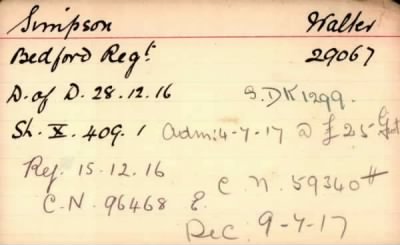 Simpson Walter
Bedford Regt. 29067
D. of D. 28.12.16 S.DK1299.
Sh. X. 409. 1 Adm: 4-7-17 @ £25
Rej. 15.12.16
C.N. 59340 #
C.N. 96468 E.
Dec. 9-7-17